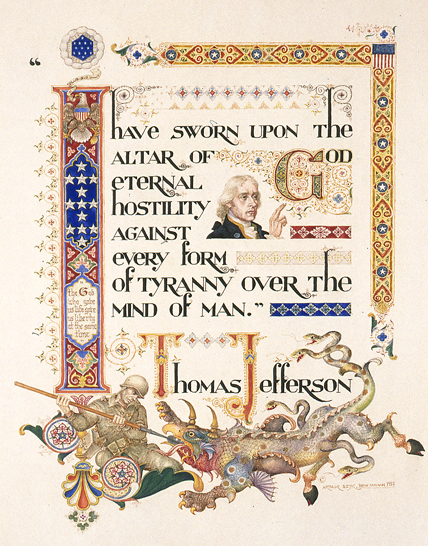 “
I have SWORN UPON the
ALTAR OF GOD
eternal
hostility
AGAINST
every form
of TYRANNY OVER the
MIND OF MAN.”
the God
who gave
us life gave
us liberty
at the same
time
Thomas Jefferson
ARTHUR SZYK